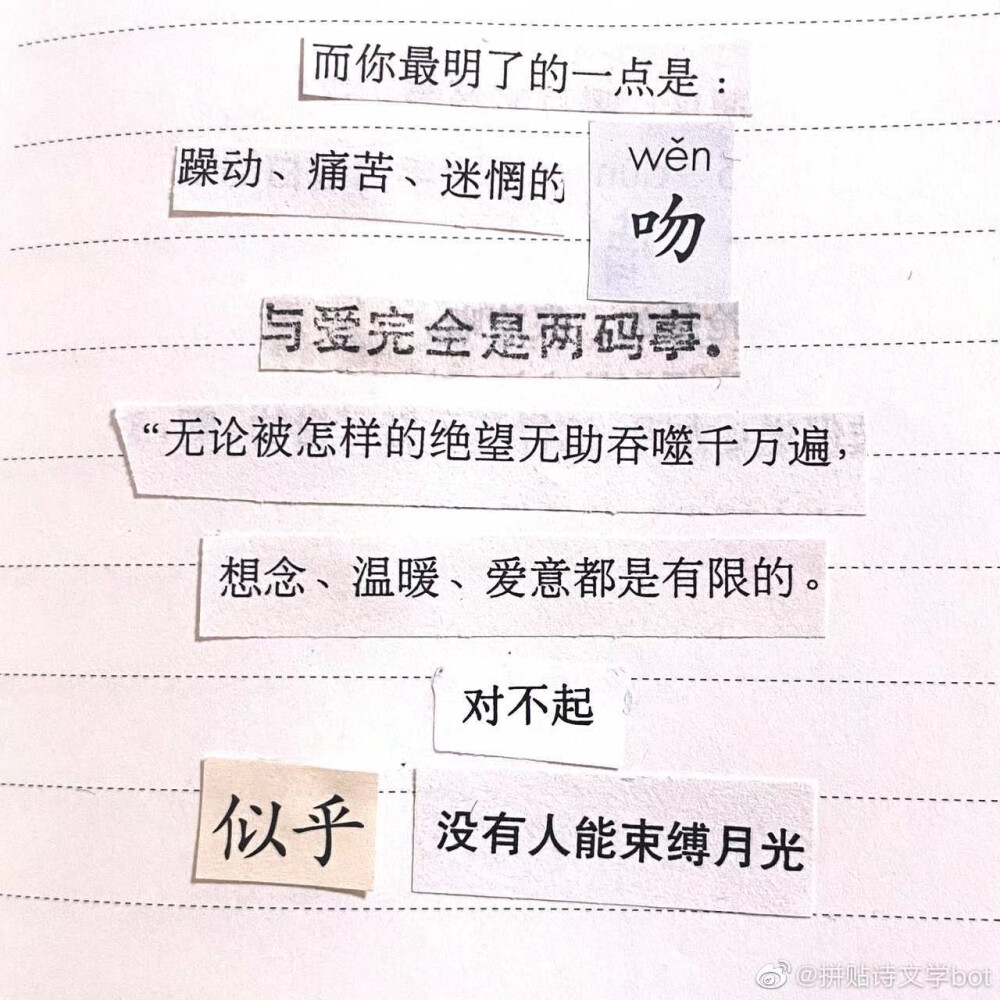 而你最明了的一点是：
躁动、痛苦、迷惘的
wěn
吻
与爱完全是两码事。
“无论被怎样的绝望无助吞噬千万遍，
想念、温暖、爱意都是有限的。
对不起
似乎 没有人能束缚月光
@拼贴诗文学bot